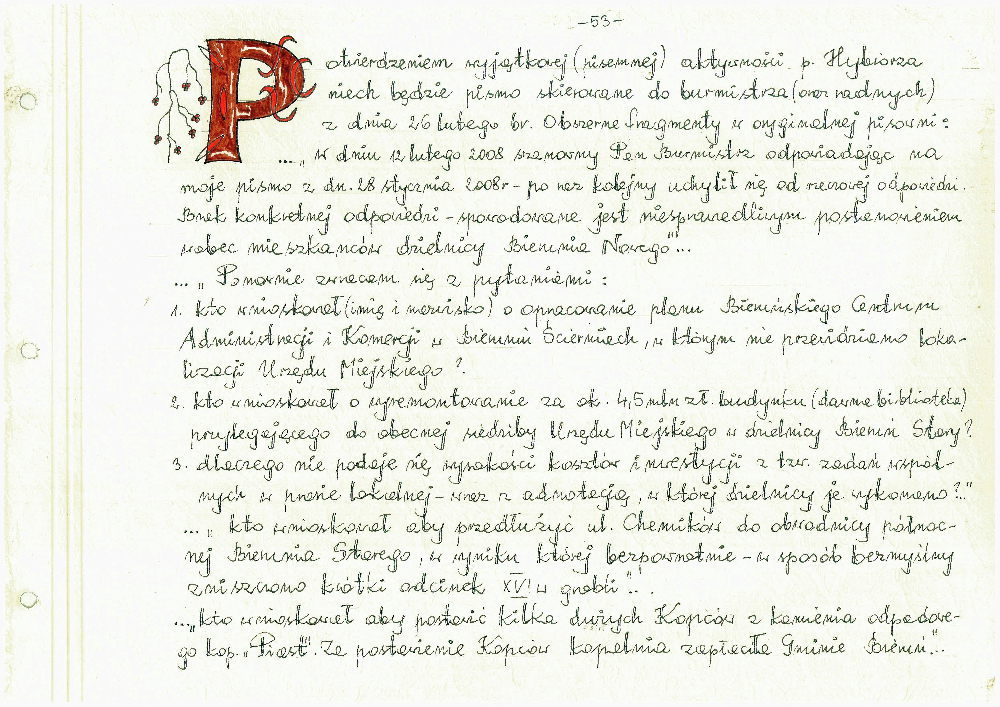 -53-
Potwierdzeniem wyjątkowej (pisemnej) aktywności p. Hybiorza
niech będzie pismo skierowane do burmistrza (oraz radnych)
z dnia 26 lutego br. Obszerne fragmenty w oryginalnej pisowni:
..." w dniu 12 lutego 2008 szanowny Pan Burmistrz odpowiadając na
moje pismo z dn. 28 stycznia 2008r - po raz kolejny uchylił się od rzeczowej odpowiedzi.
Brak konkretnej odpowiedzi - spowodowane jest niesprawiedliwym postanowieniem
wobec mieszkańców dzielnicy Bierunia Nowego"...
..." Ponownie zwracam się z pytaniami:
1. kto wnioskował (imię i nazwisko) o opracowanie planu Bieruńskiego Centrum
Administracji i Komercji w Bieruniu Ścierniach, w którym nie przewidziano loka-
lizacji Urzędu Miejskiego?
2. kto wnioskował o wyremontowanie za ok. 4,5 mln zł. budynku (dawna biblioteka)
przylegającego do obecnej siedziby Urzędu Miejskiego w dzielnicy Bieruń Stary?
3. dlaczego nie podaje się wysokości kosztów inwestycji z tzw. zadań wspól-
nych w prasie lokalnej - wraz z adnotacją, w której dzielnicy je wykonano?.."
..." kto wnioskował aby przedłużyć ul. Chemików do obwodnicy północ-
nej Bierunia Starego, w wyniku której bezpowrotnie - w sposób bezmyślny
zniszczono krótki odcinek XVI w grobli"...
..."kto wnioskował aby postawić kilka dużych Kopców z kamienia odpadowe-
go kop. "Piast". Za postawienie Kopców kopalnia zapłaciła Gminie Bieruń"...